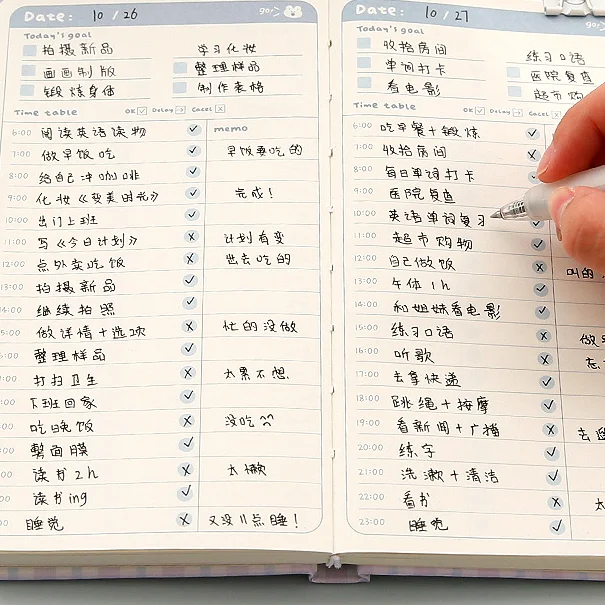 Date: 10 / 26
go!
Today's goal
拍摄新品 学习化妆
画画制版 整理样品
锻炼身体 制作表格
Time table OK Delay Cacel
memo
6:00 阅读英语读物
7:00 做早饭吃 早饭要吃的
8:00 给自己冲咖啡
9:00 化妆《变美时光》 完成!
10:00 出门上班
11:00 写《今日计划》 计划有变
12:00 点外卖吃饭 出去吃的
13:00 拍摄新品
14:00 继续拍照
15:00 做详情+选项 忙的没做
:00 整理样品
:00 打扫卫生 太累不想.
:00 下班回家
:00 吃晚饭 没吃
:00 敷面膜
:00 读书2h 太懒
:00 读书ing
:00 睡觉 又没11点睡!
Date: 10 / 27
Today's goal
收拾房间 练习口语
单词打卡 医院复查
看电影 超市购
Time table OK Delay Cacel
6:00 吃早餐+锻炼
7:00 收拾房间
8:00 每日单词打卡
9:00 医院复查
10:00 英语单词复习
11:00 超市购物
12:00 自己做饭 叫的
13:00 午休1h
14:00 和姐妹看电影
15:00 练习口语
16:00 听歌
17:00 去拿快递
18:00 跳绳+按摩
19:00 看新闻+广播 去
20:00 练字
21:00 洗漱+清洁
22:00 看书 太
23:00 睡觉